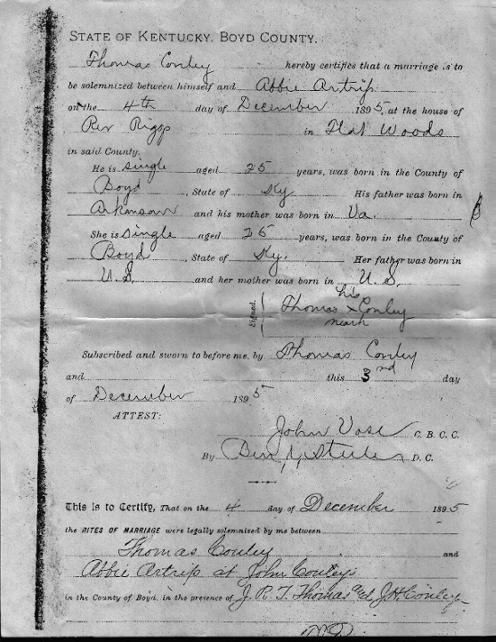 STATE OF KENTUCKY, BOYD COUNTY.
Thomas Conley hereby certifies that a marriage is to
be solemnized between himself and Abbie Artrip
on the 4th day of December 1895, at the house of
Rev Riggs in Flat Woods
in said County.
He is single aged 25 years, was born in the County of
Boyd, State of Ky His father was born in
Arkansaw and his mother was born in Va.
She is single aged 25 years, was born in the County of
Boyd, State of Ky. Her father was born in
U.S. and her mother was born in U.S.
Signed. Thomas his x mark Conley
Subscribed and sworn to before me, by Thomas Conley
and this 3nd day
of December 1895
ATTEST:
John Vose C. B. C. C.
By D. C.
This is to Certify, That on the 4 day of December 1895
the RITES OF MARRIAGE were legally solemnized by me between
Thomas Conley and
Abbie Artrip at John Conley's
in the County of Boyd, in the presence of J. R. T. Thomas and J H Conley